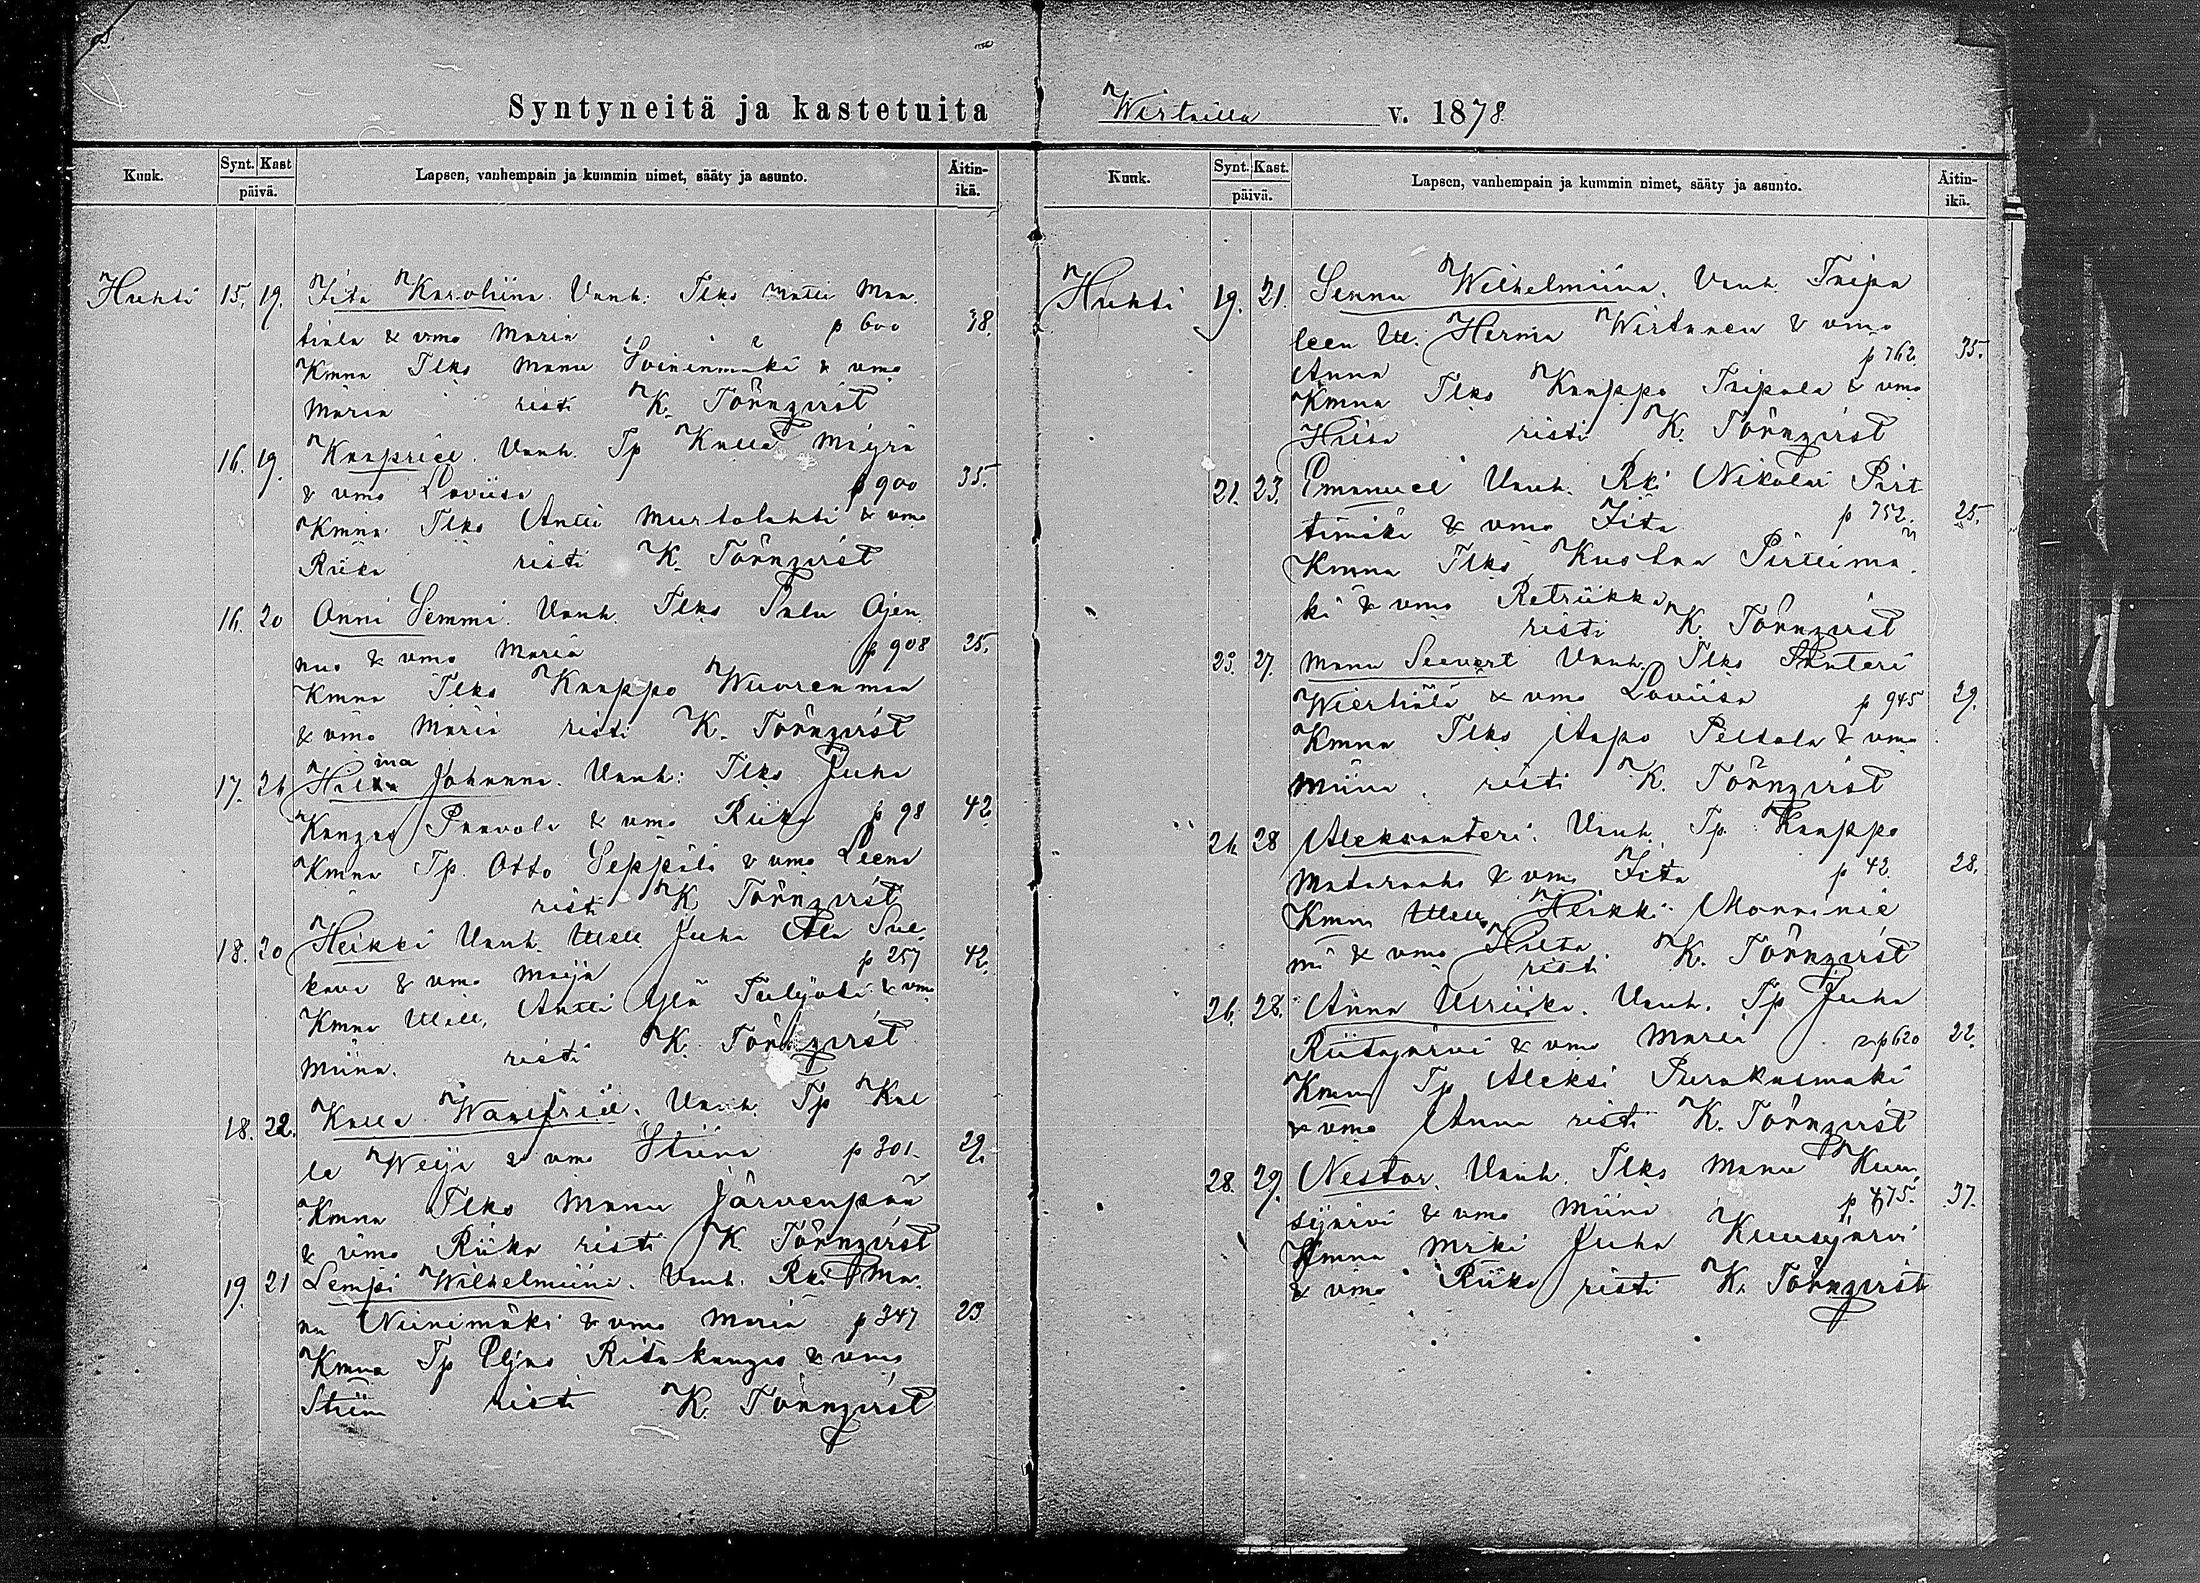 Syntyneitä ja kastetuita
Kuuk. Synt. Kast päivä. Lapsen, vanhempain ja kummin nimet, sääty ja asunto. Äitin-ikä.
Huhti 15. 19. Iita Karoliina. Vanh. Tlks Matti Maa
tiala & vmo Maria p 600 38.
Kmna Tlks Manu Soininmäki & vmo
Maria risti K. Törnqvist
16. 19. Kaapriel. Vanh. Tp Kalle Mäyrä
& vmo Loviisa p 900 35.
Kmna Tlks Antti Murtolahti & vmo
Riika risti K. Törnqvist
16. 20 Onni Semmi. Vanh. Tlks Salu Ojen
nus & vmo Maria p 908 25.
Kmna Tlks Kaappo Wuorenmaa
& vmo Maria risti K. Törnqvist
17. 21 Hilma Johanna. Vanh: Tlks Juha
Kangas Paavola & vmo Riika p 98 42
Kmna Tp. Otto Seppälä & vmo Leena
risti K. Törnqvist
18. 20 Heikki Vanh. Juha Ala Sul
kava & vmo Maija p 257 42.
Kmna Antti Ylä Tulijoki & vmo
Miina. risti K. Törnqvist
18. 22. Kalle Wanfried. Vanh. Tp Kal
le Weija & vmo Stiina p 301. 29.
Kmna Tlks Manu Järvenpää
& vmo Riika risti K. Törnqvist
19. 21 Lempi Wilhelmiina. Vanh. Rki Ma
nu Niinimäki & vmo Maria p 347 23
Kmna Tp Eljas Ritakangas & vmo
Stiina risti K. Törnqvist
Wirtailla v. 1878.
Kuuk. Synt. Kast. päivä. Lapsen, vanhempain ja kummin nimet, sääty ja asunto. Äitin-ikä.
Huhti 19. 21. Senna Wilhelmiina. Vanh. Taipa
leen Herma Wirtanen & vmo
Anna p 762. 35.
Kmna Tlks Kaappo Taipale & vmo
Hiisa risti K. Törnqvist
21. 23. Emanuel Vanh. Rki Nikolai Pirt
timäki & vmo Iita p 752. 25.
Kmna Tlks Kustaa Pirttimä
ki & vmo Retriikka
risti K. Törnqvist
23. 27. Manu Seevert Vanh. Tlks Santeri
Wiertiälä & vmo Loviisa p 945 29.
Kmna Tlks Aapo Peltola & vmo
Miina. risti K. Törnqvist
21. 28 Aleksanteri. Vanh. Tp. Kaappo
Mataraaho & vmo Iita p 42. 28.
Kmna Heikki
mi & vmo Hilta
risti K. Törnqvist
26. 28. Anna Ulriika. Vanh. Tp Juha
Riitajärvi & vmo Maria p 620 22.
Kmna Tp Aleksi Purakasmäki
& vmo Anna risti K. Törnqvist
28. 29. Nestor. Vanh. Tlks Manu Kuu
sijärvi & vmo Miina p 475. 37.
Kmna Mrki Juha Kuusijärvi
& vmo Riika risti K. Törnqvist